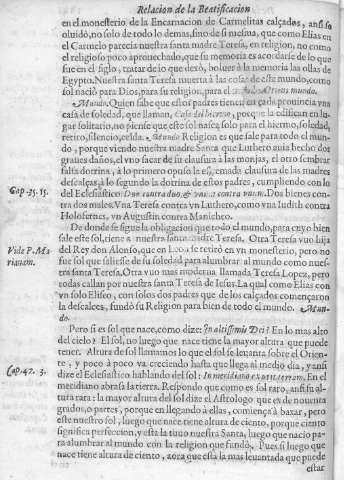 Relacion de la Beatificacion
en el monesterio de la Encarnacion de Carmelitas calçados, ansi se
oluidò, no solo de todo lo demas, sino de si mesma, que como Elias en
el Carmelo parecia nuestra santa madre Teresa, en religion, no como
el religioso poco aprouechado, que su memoria es acordarse de lo que
fue en el siglo, tratar de lo que dexò, boluer à la memoria las ollas de
Egypto. Nuestra santa Teresa muerta à las cosas de este mundo, como
sol naciò para Dios, para su religion, para el Oriens mundo.
Mundo. Quien sabe que estos padres tienen en cada prouincia vna
casa de soledad, que llaman, Casa del hiermo, porque la edifican en lu-
gar solitario, no piense que este sol nasca solo para el hiermo, soledad,
retiro, silencio, celda. Mundo Religion es que sale para todo el mun-
do, porque viendo nuestra madre Santa que Luthero auia hecho dos
graues daños, el vno sacar de su clausura à las monjas, el otro sembrar
falsa dotrina, à lo primero opuso la clausura de las madres
descalças, à lo segundo la dotrina de estos padres, cumpliendo con lo
Cap. 33. 15.
del Eclesiastico: Duo contra duo, & vnum contra vnum. Dos bienes con-
tra dos males. Vna Teresa contra vn Luthero, como vna Iudith contra
Holofernes, vn Augustin contra Manicheo.
De donde se sigue la obligacion que todo el mundo, para cuyo bien
sale este sol, tiene a nuestra santa madre Teresa. Otra Teresa vuo hija
Vide P. Ma-
rianam.
del Rey don Alonso, que en se retirò en vn monesterio, pero no
fue sol que saliesse de su soledad para alumbrar al mundo como nues-
tra santa Teresa. Otra vuo mas moderna llamada Teresa Lopez, pero
todas callan por nuestra santa Teresa de Iesus. La qual como Elias con
vn solo Eliseo, con solos dos padres que de los calçados començaron
la descalcez, fundò su Religion para bien de todo el mundo. Mun-
do.
Pero si es sol que nace, como dize: In altissimis Dei? En lo mas alto
del cielo? El sol, no luego que nace tiene la mayor altura que puede
tener. Altura de sol llamamos lo que el sol se leuanta sobre el Orien-
te, y poco à poco va creciendo hasta que llega al medio dia, y ansi
Cap. 43. 3.
dize el Eclesiastico hablando del sol: In meridiano exurit terram. En el
meridiano abrasa la tierra. Respondo que como es sol raro, ansi su al-
tura rara: la mayor altura del sol dize el Astrologo que es de nouenta
grados, o partes, porque en llegando à ellas, comiença à baxar, pero
este nuestro sol, luego que nace tiene altura de ciento, porque ciento
significa perfeccion, y esta la tuuo nuestra Santa, luego que naciò pa-
ra alumbrar al mundo con la religion que fundò. Pues si luego que
nace tiene altura de ciento, aora que està la mas leuantada que puede
estar